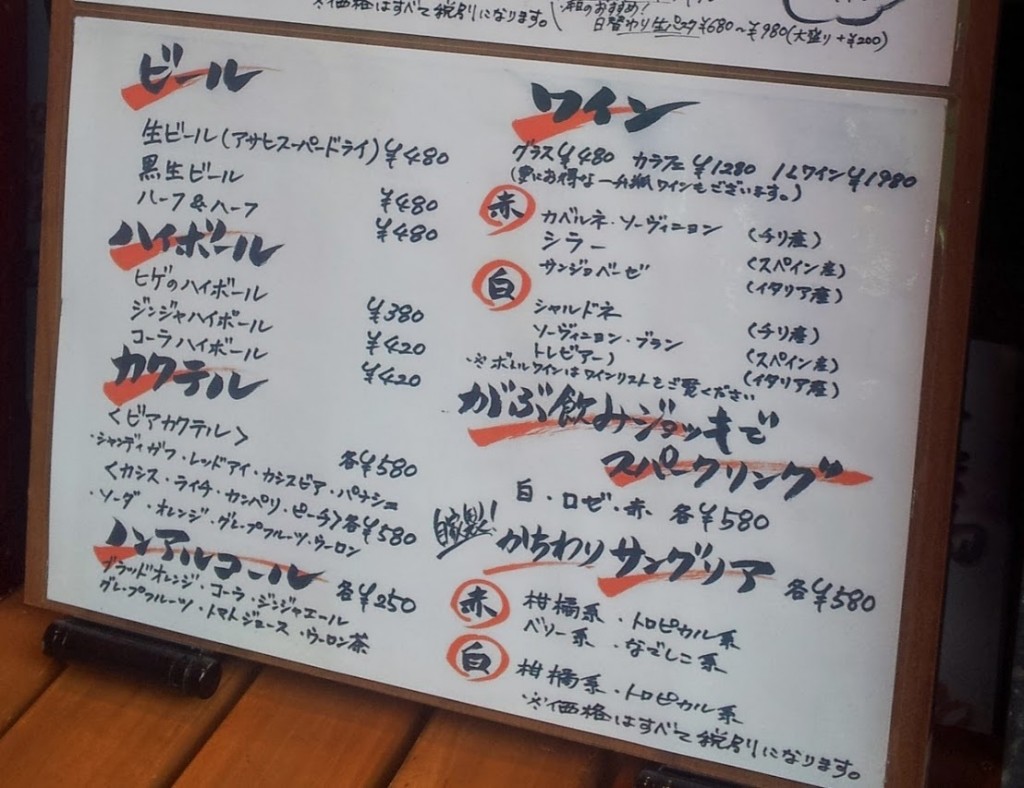 ※価格はすべて税別になります。
日替わり生パスタ¥680～¥980(大盛り+¥200)
ビール
生ビール(アサヒスーパードライ)¥480
黒生ビール ¥480
ハーフ&ハーフ ¥480
ハイボール
ヒゲのハイボール ¥380
ジンジャハイボール ¥420
コーラハイボール ¥420
カクテル
<ビアカクテル> 各¥580
・シャンディガフ・レッドアイ・カシスビア・パナシェ
<カシス・ライチ・カンパリ・ピーチ>各¥580
・ソーダ・オレンジ・グレープフルーツ・ウーロン
ノンアルコール 各¥250
ブラッドオレンジ・コーラ・ジンジャエール
グレープフルーツ・トマトジュース・ウーロン茶
ワイン
グラス¥480 カラフェ¥1280 1Lワイン¥1980
(更にお得な一升瓶ワインもございます。)
赤
カベルネ・ソーヴィニョン (チリ産)
シラー (スペイン産)
サンジョベーゼ (イタリア産)
白
シャルドネ (チリ産)
ソーヴィニョン・ブラン (スペイン産)
トレビアーノ (イタリア産)
※ボトルワインはワインリストをご覧ください
がぶ飲みジョッキで
スパークリング
白・ロゼ・赤 各¥580
自家製!
かちわりサングリア 各¥580
赤
柑橘系・トロピカル系
ベリー系・なでしこ系
白
柑橘系・トロピカル系
※価格はすべて税別になります。